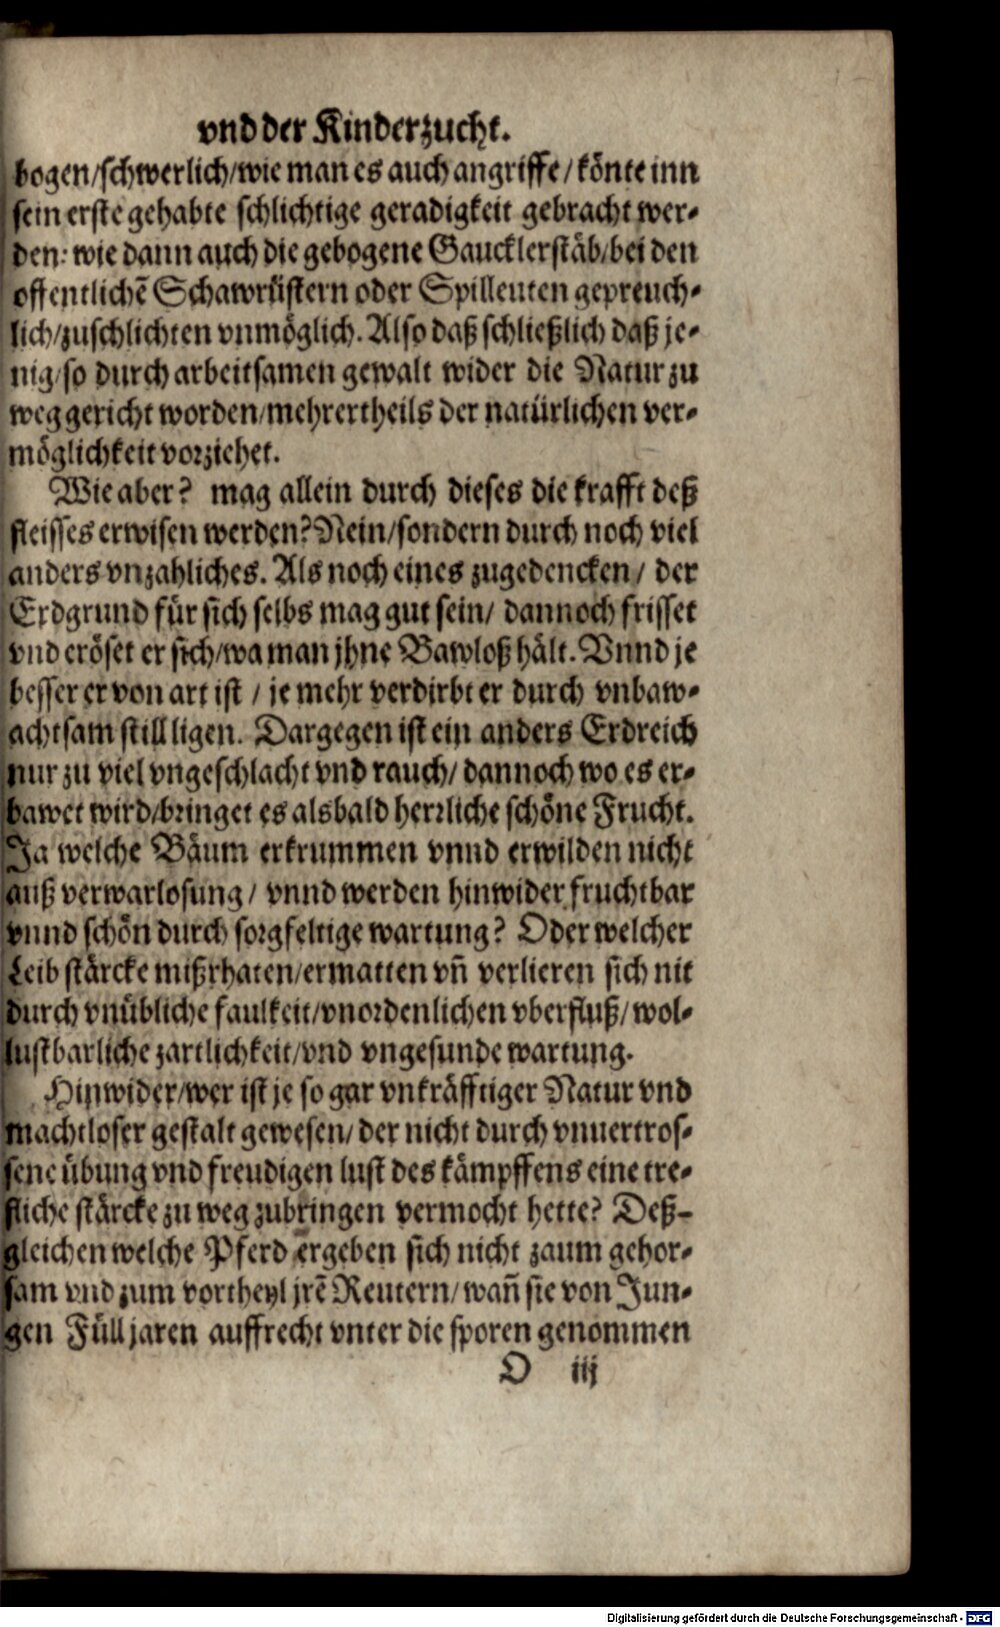 vnd der Kinderzucht.
bogen/schwerlich/wie man es auch angriffe/könte inn
sein erste gehabte schlichtige geradigkeit gebracht wer-
den: wie dann auch die gebogene Gaucklerstäb/bei den
offentlichẽ Schawrüstern oder Spilleuten gepreuch-
lich/zuschlichten vnmöglich. Also daß schließlich daß je-
nig/so durch arbeitsamen gewalt wider die Natur zu
weg gericht worden/mehrertheils der natürlichen ver-
möglichkeit vorziehet.
Wie aber? mag allein durch dieses die krafft deß
fleisses erwisen werden? Nein/sondern durch noch viel
anders vnzahliches. Als noch eines zugedencken/ der
Erdgrund für sich selbs mag gut sein/ dannoch frisset
vnd eröset er sich/wa man jhne Bawloß hält. Vnnd je
besser er von art ist / je mehr verdirbt er durch vnbaw-
achtsam still ligen. Dargegen ist ein anders Erdreich
nur zu viel vngeschlacht vnd rauch/ dannoch wo es er-
bawet wird/bringet es alsbald herrliche schöne Frucht.
Ja welche Bäum erkrummen vnnd erwilden nicht
auß verwarlosung/ vnnd werden hinwider fruchtbar
vnnd schön durch sorgfeltige wartung? Oder welcher
Leib stärcke mißrhaten/ermatten vñ verlieren sich nit
durch vnübliche faulkeit/vnordenlichen vberfluß/wol-
lustbarliche zartlichkeit/vnd vngesunde wartung.
Hinwider/wer ist je so gar vnkräfftiger Natur vnd
machtloser gestalt gewesen/der nicht durch vnuertros-
sene übung vnd freudigen lust des kämpffens eine tre-
fliche stärcke zu weg zubringen vermocht hette? Deß-
gleichen welche Pferd ergeben sich nicht zaum gehor-
sam vnd zum vortheyl jrẽ Reutern/wañ sie von Jun-
gen Füll jaren auffrecht vnter die sporen genommen
O iij
Digitalisierung gefördert durch die Deutsche Forschungsgemeinschaft - DFG